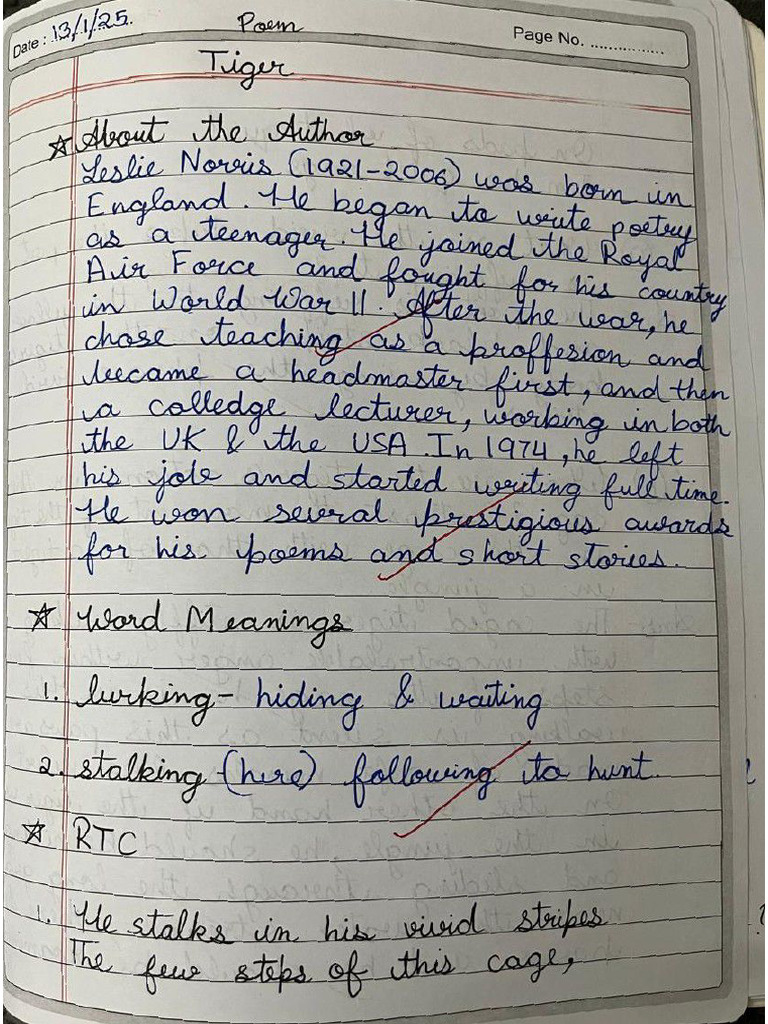 Date : 13/1/25.
Poem
Page No. ................
Tiger
☆ About the Author
Leslie Norris (1921-2006) was born in
England. He began to write poetry
as a teenager. He joined the Royal
Air Force and fought for his country
in World War II. After the war, he
chose teaching as a proffesion and
became a headmaster first, and then
a colledge lecturer, working in both
the UK & the USA. In 1974, he left
his job and started writing full time.
He won several prestigious awards
for his poems and short stories.
☆ Word Meanings
1. lurking - hiding & waiting
2. stalking - (here) following to hunt.
☆ RTC
1. He stalks in his vivid stripes
The few steps of this cage,